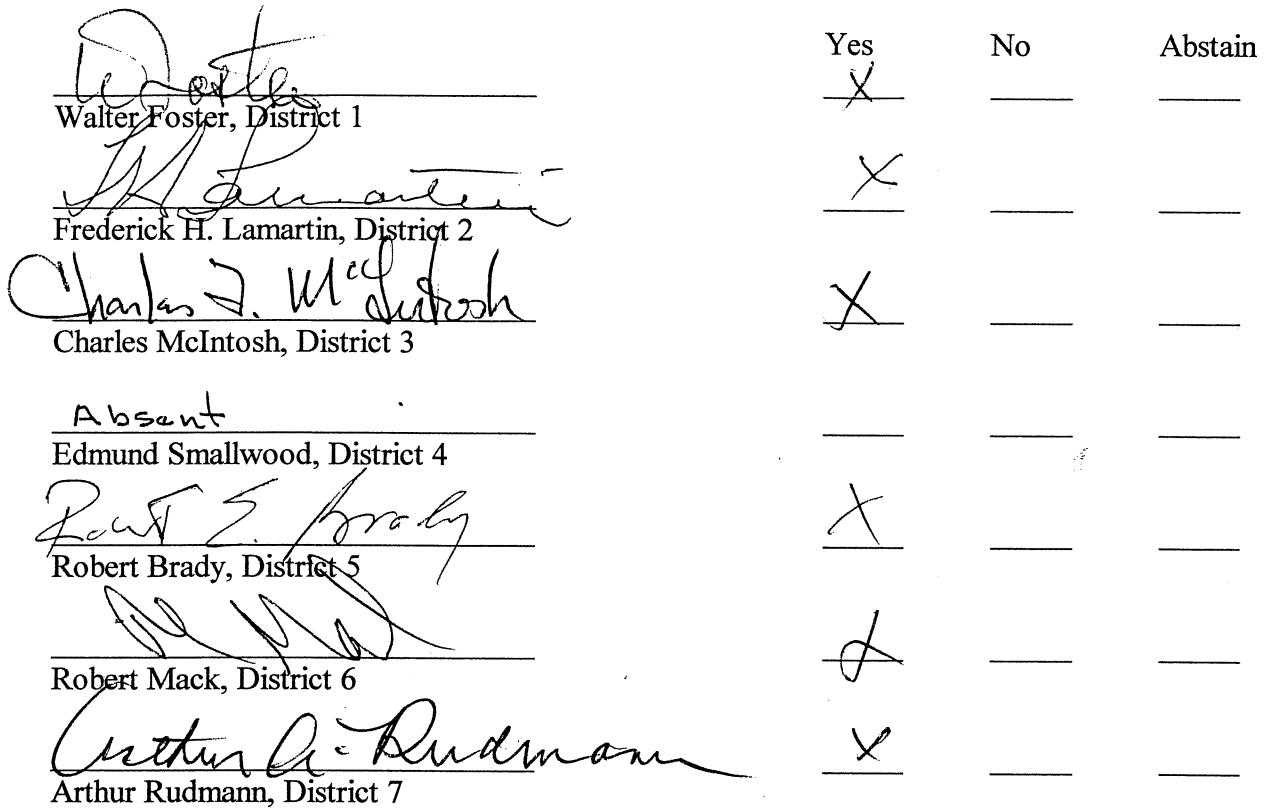 Yes No Abstain
X
Walter Foster, District 1
X
Frederick H. Lamartin, District 2
Charles F. McIntosh X
Charles McIntosh, District 3
Absent
Edmund Smallwood, District 4
Robert E. Brady X
Robert Brady, District 5
X
Robert Mack, District 6
Arthur A. Rudmann X
Arthur Rudmann, District 7